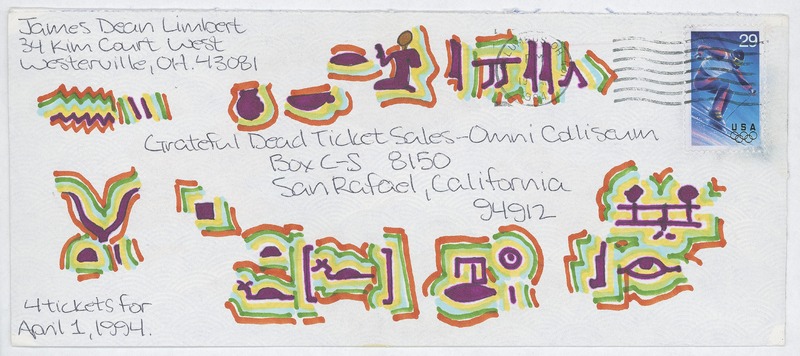 James Dean Limbert
34 Kim Court West
Westerville, OH. 43081
29
USA
1994
Grateful Dead Ticket Sales-Omni Colliseum
Box C-S 8150
San Rafael, California
94912
4 tickets for
April 1, 1994.